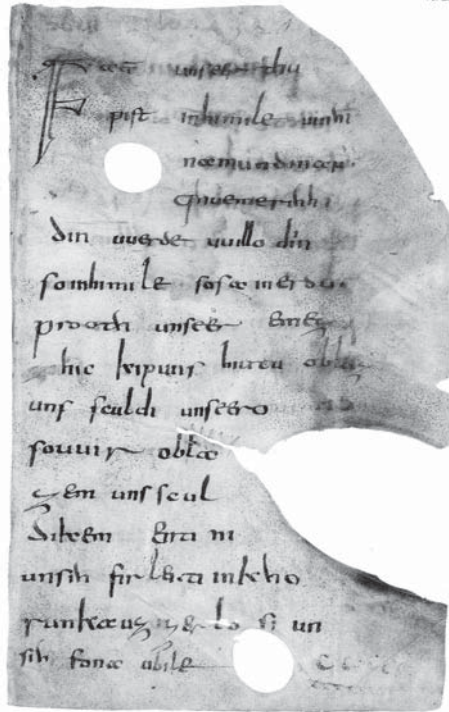 Fater unseer thu
pist inhimile uuihi
namun dinan
qhueme rihhi
din uuerde uuillo diin
so inhimile sosa in erdu
prooth unseer emez
zihic kip uns hiutu oblaz
uns sculdi unseero
so uuir obla
zem uns scul
dikem enti ni
unsih firleiti in kho
runka uzzer losi un
sih fona ubile